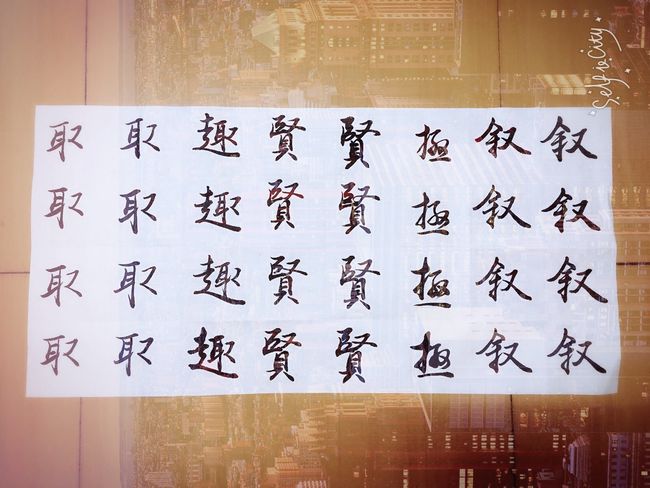 叙叙叙叙
叙叙叙叙
極極極極
賢賢賢賢
賢賢賢賢
趣趣趣趣
取取取取
取取取取
SelfieCity